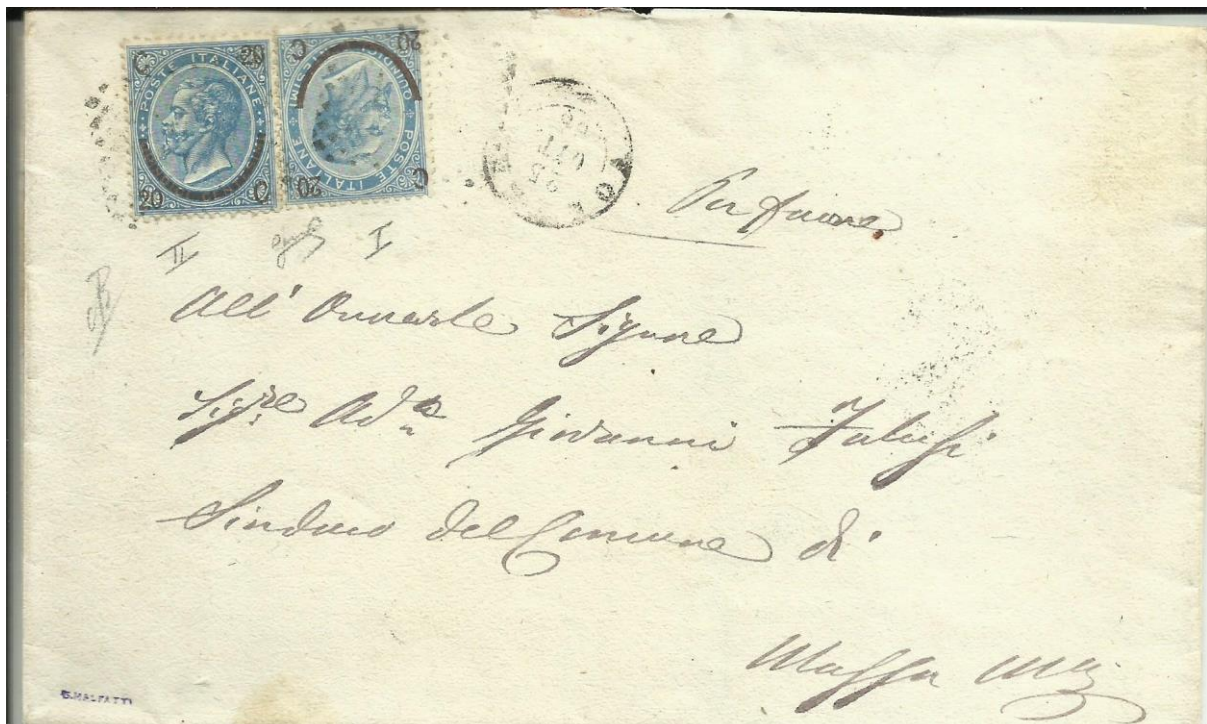 C 20
POSTE ITALIANE
20 C
C 20
POSTE ITALIANE
20 C
25
OTT
II
I
Per favore
All' Onorevole Signore
Sigre Giovanni Falusi
Sindaco del Comune di
Massa Mma
G.MALFATTI